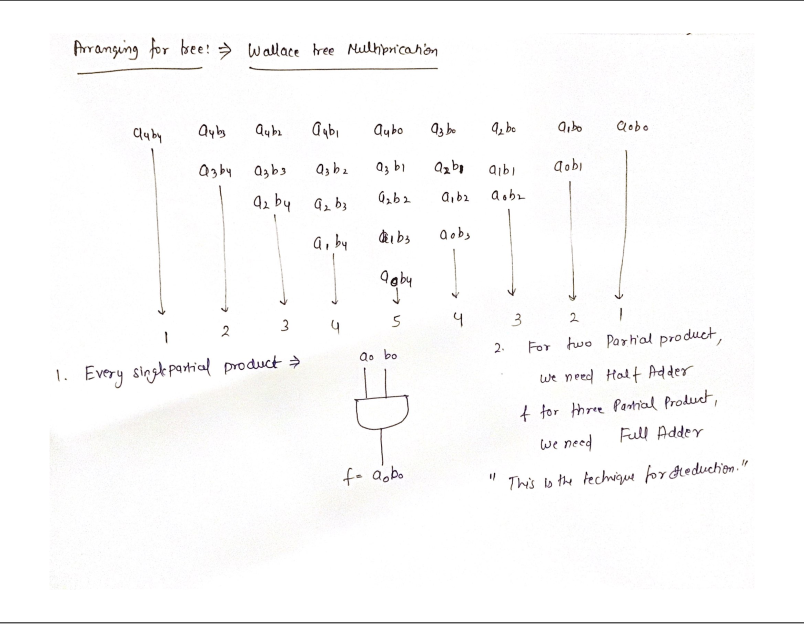 Arranging for tree: ⇒ Wallace tree Multiprication
a4b4 a4b3 a4b2 a4b1 a4b0 a3b0 a2b0 a1b0 a0b0
a3b4 a3b3 a3b2 a3b1 a2b1 a1b1 a0b1
a2b4 a2b3 a2b2 a1b2 a0b2
a1b4 a1b3 a0b3
a0b4
1 2 3 4 5 4 3 2 1
1. Every single partial product ⇒
a0 b0
f = a0b0
2. For two Partial product,
we need Half Adder
& for three Partial Product,
we need Full Adder
" This is the technique for Reduction."